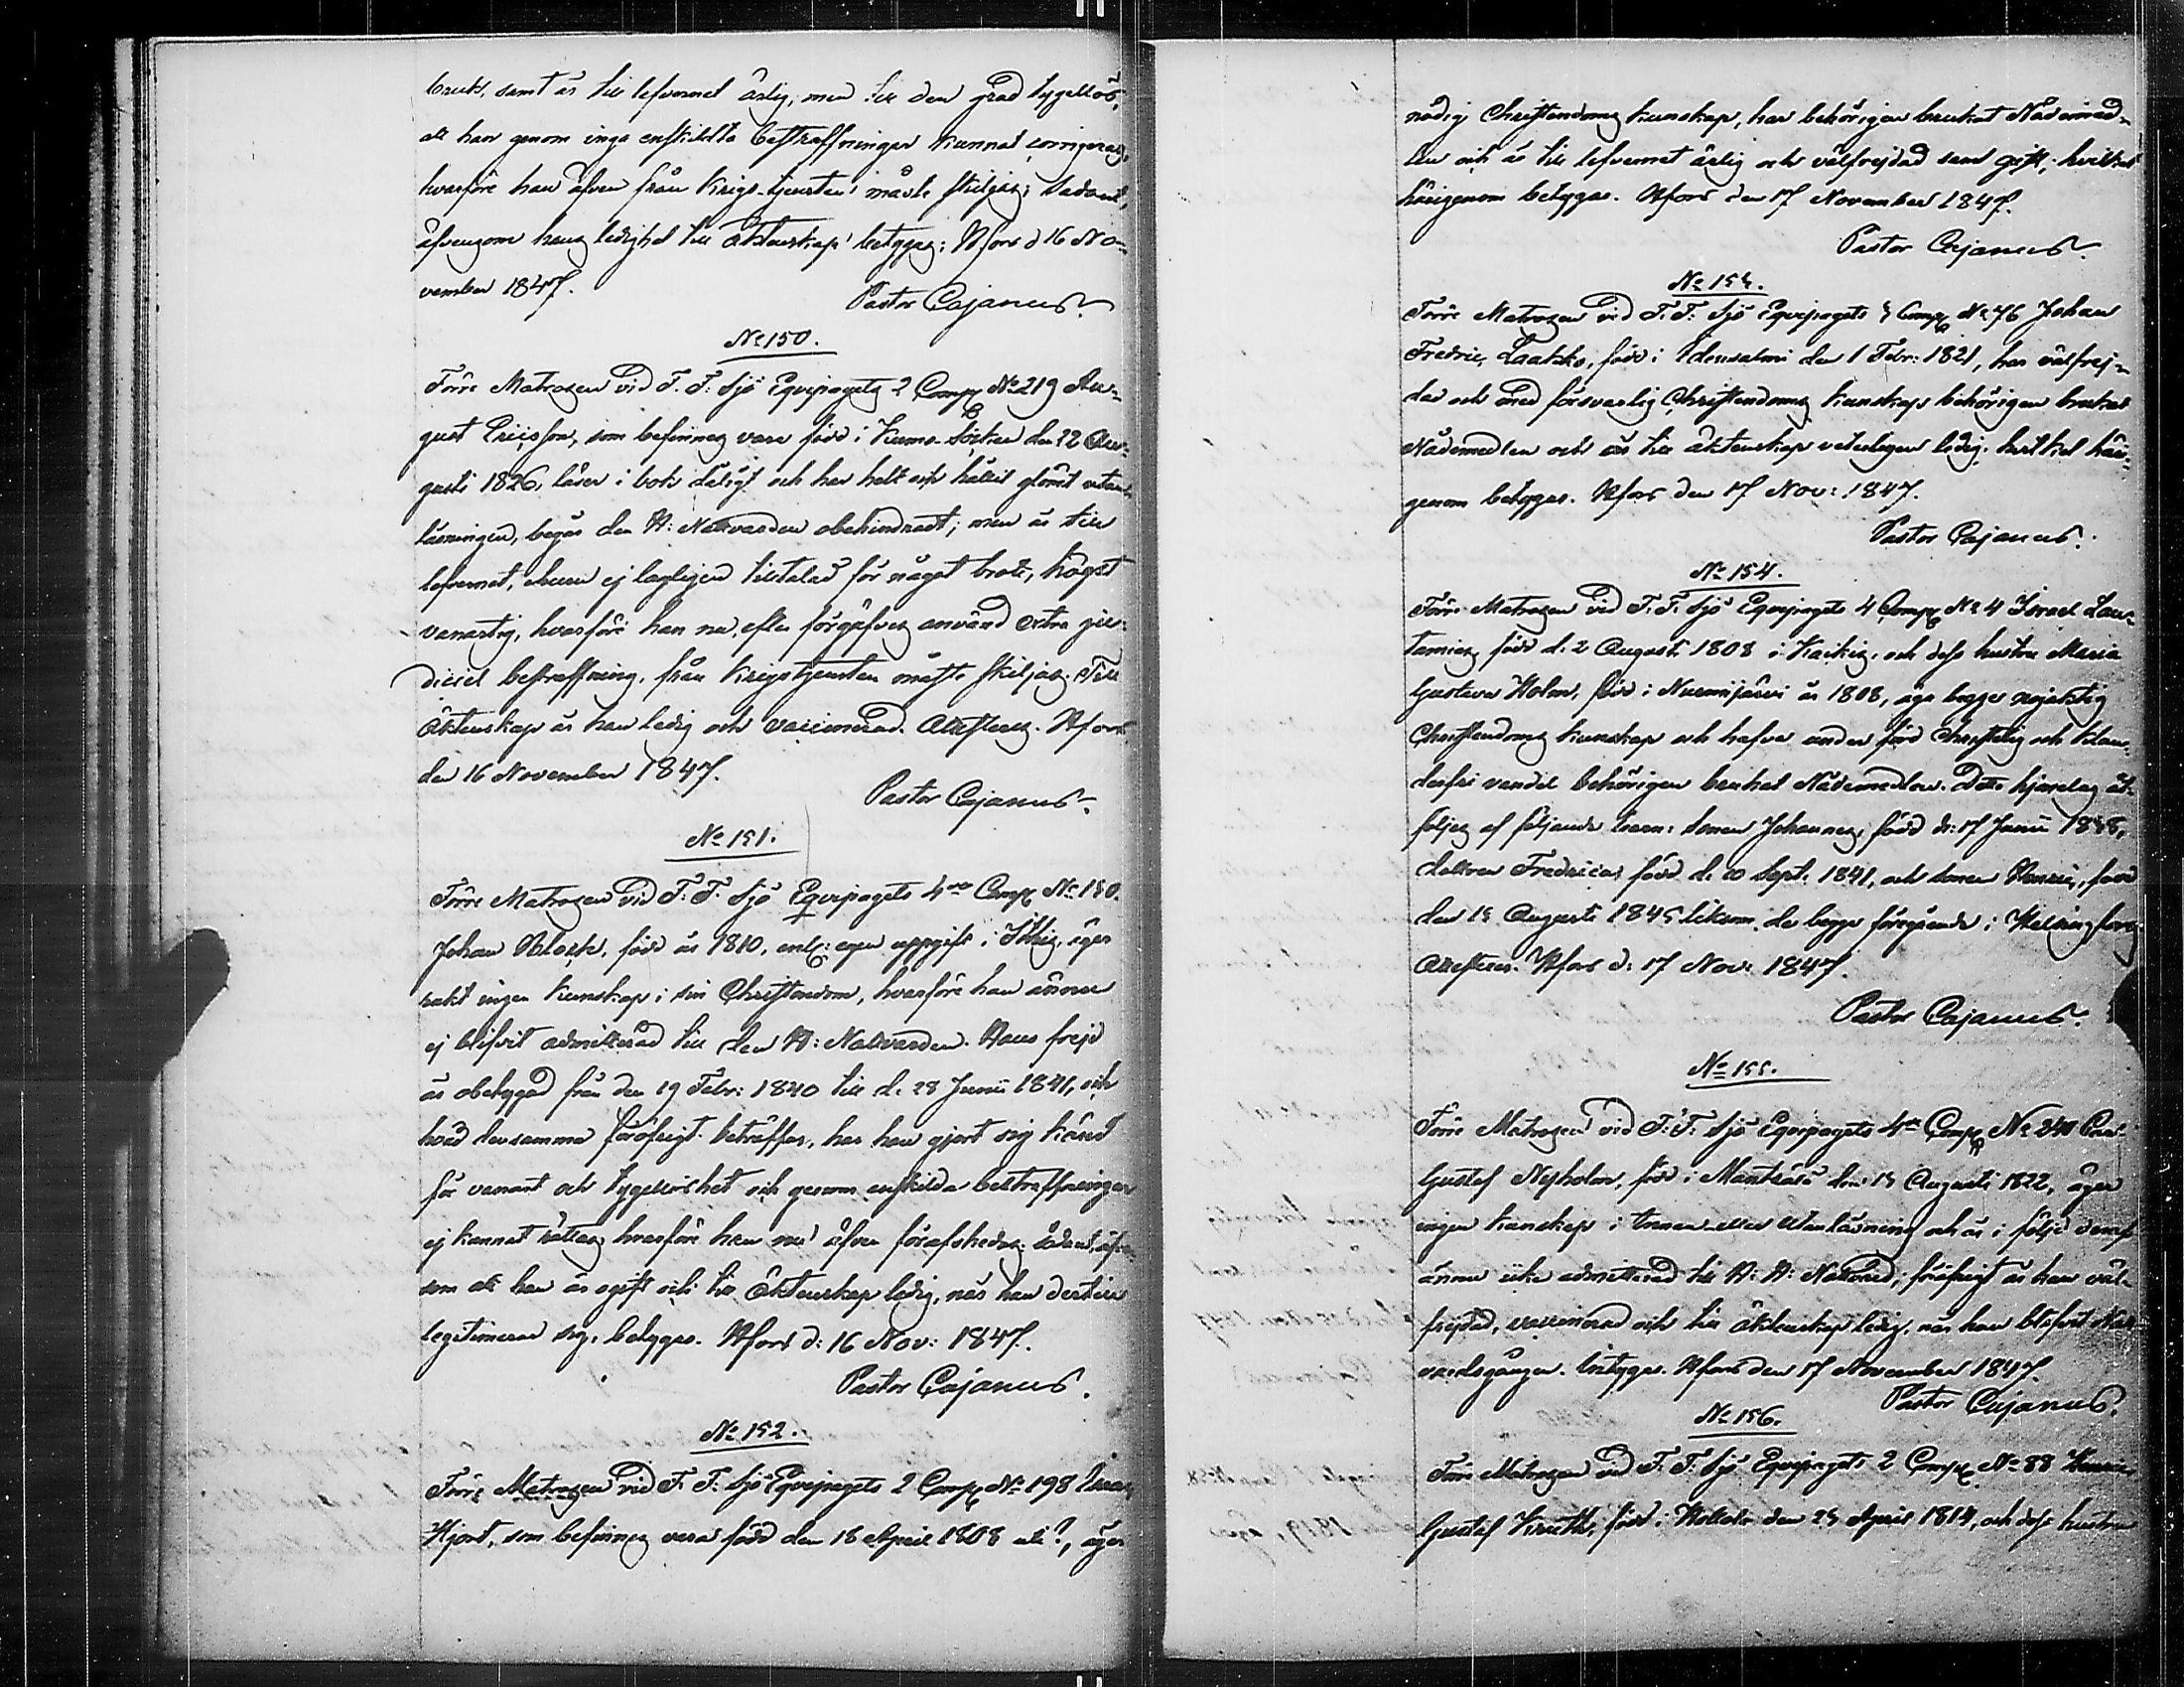 bruk, samt är till lefvernet ärlig, men till den grad tygellös,
att han genom inga enskildta bestraffningar kunnat corrigeras,
hvarföre han äfven från Krigs-tjensten måste skiljas; Sådant,
äfvensom hans ledighet till äktenskap betygas; Hfors d 16 No-
vember 1847.
Pastor Cajanus
No 150.
Förre Matrosen vid F. F. Sjö Equipagets 2 Comp No 219 Au-
gust Ericsson, som befinnes vara född i Kumo Socken den 22 Au-
gusti 1826, läser i bok dåligt och har helt och hållit glömt utan-
läsningen, begår den H: Nattvarden obehindradt; men är till
lefvernet, ehuru ej lagligen tilltalad för något brott, högst
vanartig, hvarföre han nu, efter förgäfves använd extra ju-
diciel bestraffning, från Krigstjensten måste skiljas. Till
Äktenskap är han ledig och vaccinerad. Attesteras. Hfors
den 16 November 1847.
Pastor Cajanus
No 151.
Förre Matrosen vid F. F. Sjö Equipagets 4de Comp No 150.
Johan Block, född år 1810, enl: egen uppgift i Ithis, äger
rakt ingen kunskap i sin Christendom, hvarföre han ännu
ej blifvit admitterad till den H: Nattvarden. Hans frejd
är obetygad från den 19 Febr: 1840 till d. 28 Junii 1841, och
hvad densamma föröfrigt beträffar, har han gjort sig känd
för vanart och tygellöshet och genom enskilda bestraffningar
ej kunnat rättas hvarföre han nu äfven förafskedas: Sådant, äfven-
som att han är ogift och till Äktenskap ledig, när han dertill
legitimerar sig, betygas. Hfors d: 16 Nov: 1847.
Pastor Cajanus.
No 152.
Förre Matrosen vid F. F. Sjö Equipagets 2 Comp No 198
Hjort, som befinnes vara född den 18 April 1808 uti?, äger
nödig Christendoms kunskap, har behörigen brukat Nådemed-
len och är till lefvernet ärlig och välfrejdad samt gift; hvilket
härigenom betygas. Hfors den 17 November 1847.
Pastor Cajanus
No 153.
Förre Matrosen vid F. F. Sjö Equipagets Comp No 76 Johan
Fredric Laakko, född i Idensalmi den 1 Febr: 1821, har välfrej-
dad och med försvarlig Christendoms kunskap behörigen brukat
Nådemedlen och är till äktenskap veterligen ledig; hvilket häri-
genom betygas. Hfors den 17 Nov: 1847.
Pastor Cajanus.
No 154.
Förre Matrosen vid F. F. Sjö Equipagets 4 Comp No 4 Israel Lau-
född d. 2 Augusti 1808 i Kaikis, och dess hustru Maria
Gustava Holm, född i Nurmijärvi år 1808, äga begge nöjaktig
Christendoms kunskap och hafva under förd Christelig och klan-
derfri vandel behörigen brukat Nådemedlen. Detta hjonelag åt-
följes af följande barn: sonen Johannes, född d: 17 Junii 1838,
dottren Fredrica, född d. 20 Sept. 1841, och sonen Henric, född
den 15 Augusti 1845 liksom de begge föregående i Helsingfors
Attesteras. Hfors d: 17 Nov: 1847.
Pastor Cajanus.
No 155.
Förre Matrosen vid F. F. Sjö Equipagets 4de Comp No 240 Carl
Gustaf Nyholm, född i Mäntsälä den 15 Augusti 1822, äger
ingen kunskap i Innan- eller Utanläsning och är i följd deraf
ännu icke admitterad till H: H: Nattvard; föröfrigt är han väl-
frejdad, vaccinerad och till äktenskap ledig, när han blifvit Natt-
vardsgången. Betygas. Hfors den 17 November 1847.
Pastor Cajanus.
No 156.
Förre Matrosen vid F. F. Sjö Equipagets 2 Comp No 88
Gustaf född i Hollola den 25 April 1814, och dess hustru